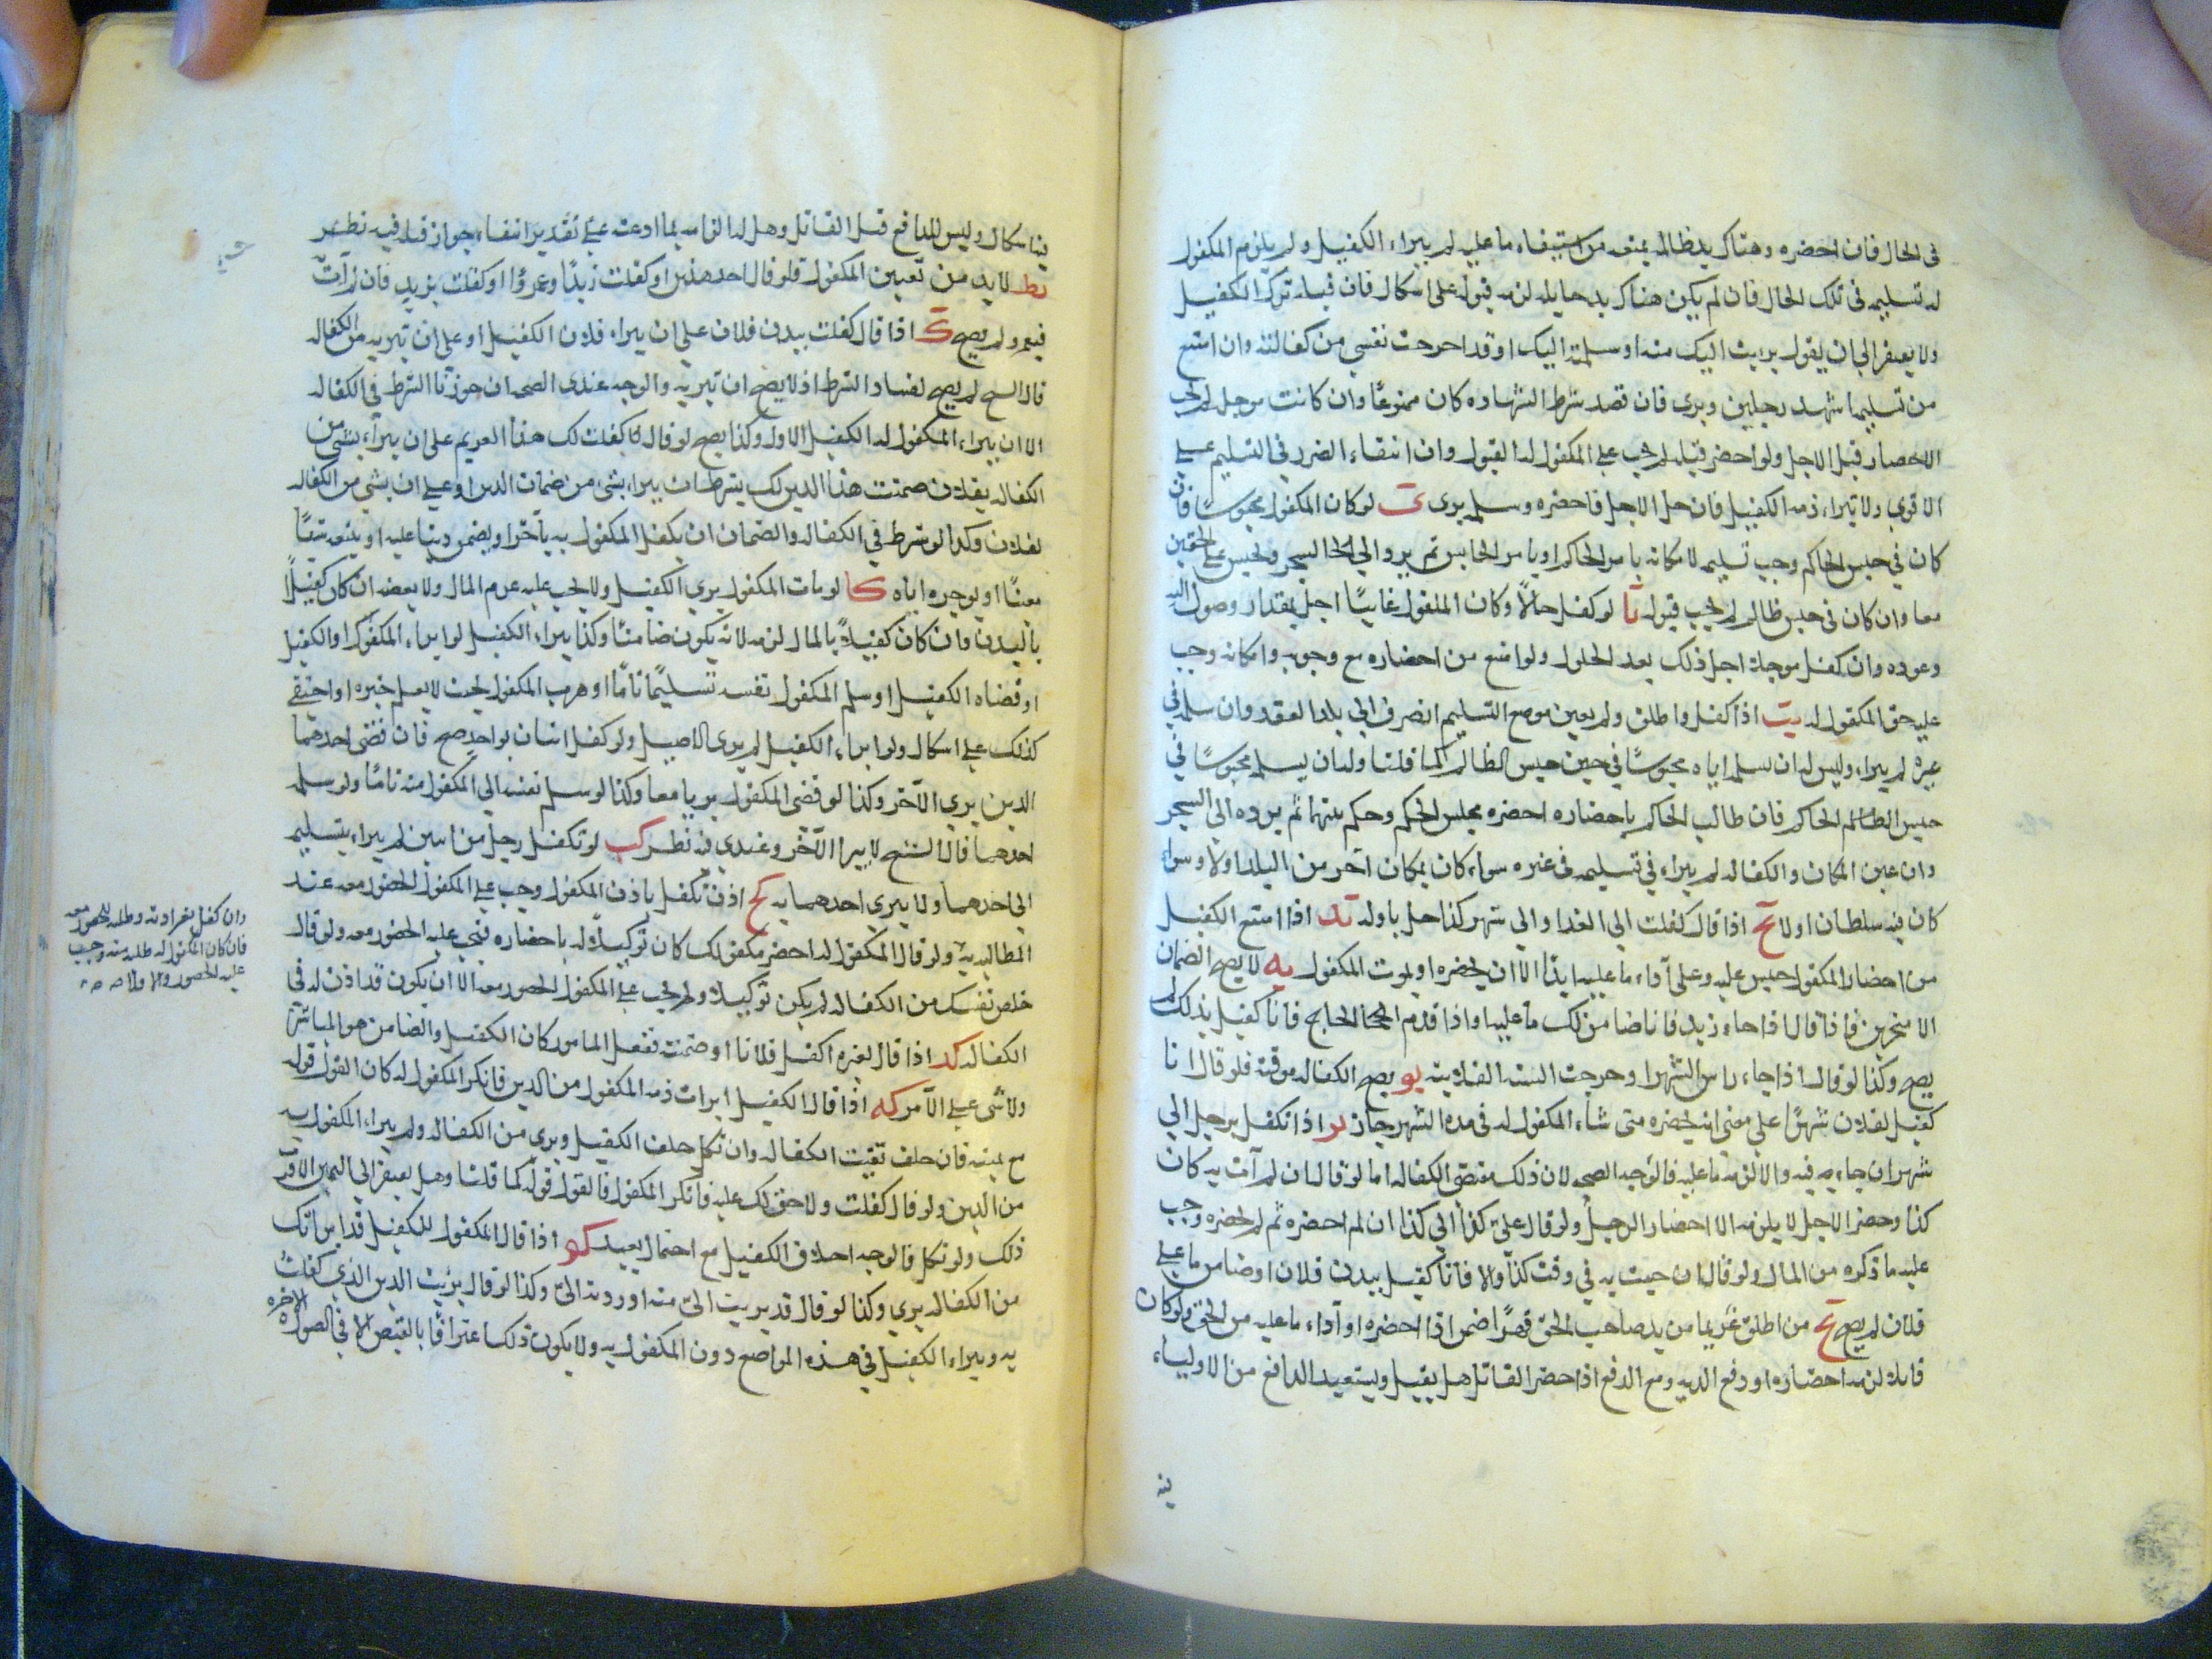 فى الحال فان احضره وهناك يد ظالمه يمنعه من استيفاء ما عليه لم يبراء الكفيل ولم يلزم المكفول
له تسليمه فى تلك الحال فان لم يكن هناك يد حايله لزمه قبوله على اشكال فان قبله ترك الكفيل
ولا يفتقر الى ان يقول برئت اليك منه او سلمته اليك او قد اخرجت نفسى من كفالته وان امتنع
من تسليمه اشهد رجلين وبرى فان قصد شرط الشهاده كان ممنوعًا وان كانت موجله لم يجب
الاحضار قبل الاجل ولو احضر قبله لم يجب على المكفول له القبول وان انتفاء الضرر فى التسليم على
الاقوى ولا تبراء ذمه الكفيل فان حل الاجل فاحضره وسلمه برى ى لو كان المكفول محبوسًا فان
كان فى حبس الحاكم وجب تسليمه لامكانه بامر الحاكم او بامر الحابس ثم يرد الى السجن ويحبس على الحقين
معا وان كان فى حبس ظالم لم يجب قبوله يا لو كفل حالاً وكان المكفول غايبًا اجل بمقدار وصول اليه
وعوده وان كفل موجلا اجل ذلك بعد الحلول ولو امتنع من احضاره مع وجوبه وامكانه وجب
عليه حق المكفول له يب اذا كفل واطلق ولم يعين موضع التسليم انصرف الى بلد العقد وان سلمه فى
غيره لم يبراء وليس له ان يسلم اياه محبوسًا فى حبس الظالم لما قلنا وله ان يسلمه محبوسًا فى
حبس الحاكم فان طالب الحاكم باحضاره احضره مجلس الحكم وحكم بينهما ثم يرده الى السجن
وان عين المكان والكفاله لم يبراء فى تسليمه فى غيره سواء كان بمكان آخر من البلد او لا وسواء
كان فيه سلطان او لا يج اذا قال كفلت الى الغد او الى شهر كذا حل باوله يد اذا امتنع الكفيل
من احضار المكفول حبس عليه وعلى آداء ما عليه ابدًا الا ان يحضره او يموت المكفول يه لا يصح الضمان
الا منجزين فاذا قال اذا جاء زيد فانا ضامن لك ما عليه او اذا قدم الحاج فانا كفيل بذلك لم
يصح وكذا لو قال اذا جاء راس الشهر او خرجت السنه الفلانيه يو يصح الكفاله موقته فلو قال انا
كفيل لفلان شهرًا على معنى انه يحضره متى شاء المكفول له فى مده الشهر جاز يز اذا تكفل برجل الى
شهر ان جاء به فيه والا لزمه ما عليه فالوجه الصحه لان ذلك مقتضى الكفاله اما لو قال ان لم آت به كان
كذا وحضر الاجل لا يلزمه الا احضار الرجل ولو قال على كذا الى كذا ان لم احضره ثم لم يحضره وجب
عليه ما ذكره من المال ولو قال ان جيت به فى وقت كذا والا فانا كفيل ببدن فلان او ضامن ما على
فلان لم يصح يح من اطلق غريما من يد صاحب الحق قهرًا ضمن اذا احضره او آداء ما عليه من الحق ولو كان
قاتلا لزمه احضاره او دفع الديه ومع الدفع اذا حضر القاتل هل يقتل ويستعيد الدافع من الاولياء
فيه
فيه اشكال وليس للدافع قتل القاتل وهل له الزامه بما ادعت على تقدير انتفاء جواز قتله فيه نظر
يط لابد من تعيين المكفول فلو قال احد هذين او كفلت زيدًا وعمروًا او كفلت بزيد فان لم آت
فبعمرو لم يصح ك اذا قال كفلت ببدن فلان على ان يبراء فلان الكفيل او على ان تبريه من الكفاله
قال الشيخ لم يصح لفساد الشرط اذ لا يصح ان تبريه والوجه عندى الصحه ان جوزنا الشرط فى الكفاله
الا ان يبراء المكفول له الكفيل الاول وكذا يصح لو قال كفلت لك هذا الغريم على ان يبراء بشى من
الكفاله بفلان ضمنت هذا الدين لك بشرط ان يبراء بشى من ضمان الدين او على ان بشي من الكفاله
لفلان وكذا لو شرط فى الكفاله والضمان ان يكفل المكفول به بآخر او يضمن دينا عليه او يبيعه شيئًا
معينًا او يوجره اياه كا لو مات المكفول برى الكفيل ولا يجب عليه غرم المال ولا بعضه ان كان كفيلاً
بالبدن وان كان كفيلاً بالمال لزمه لانه يكون ضامنًا وكذا يبراء الكفيل لو ابراء المكفول او الكفيل
او قضاه الكفيل او سلم المكفول نفسه تسليمًا تامًا او هرب المكفول بحيث لا يعلم خبره او اختفى
كذلك على اشكال ولو ابراء الكفيل لم يبرى الاصيل ولو كفل اثنان بواحد صح فان قضى احدهما
الدين برى الآخر وكذا لو قضى المكفول بريا معا وكذا لو سلم نفسه الى المكفول منه تامًا ولو سلمه
احدهما قال الشيخ لا يبرا الآخر وعندى فيه نظر كب لو تكفل رجل من اثنين لم يبراء بتسليمه
الى احدهما ولا يبرى احدهما به كج اذن تكفل باذن المكفول وجب على المكفول الحضور معه عند
المطالبه به ولو قال المكفول له احضر مكفولك كان توكيلاً له باحضاره فيجب عليه الحضور معه ولو قال
خلص نفسك من الكفاله لم يكن توكيلا ولم يجب على المكفول الحضور معه الا ان يكون قد اذن له فى
الكفاله كد اذا قال لغيره اكفل فلانا او ضمنت ففعل المامور كان الكفيل والضامن هو المباشر
ولا شى على الآمر كه اذا قال الكفيل ابرات ذمه المكفول من الدين فانكر المكفول له كان القول قوله
مع يمينه فان حلف بقيت الكفاله وان نكل حلف الكفيل وبرى من الكفاله ولم يبراء المكفول به
من الدين ولو قال كفلت ولا حق لك عليه فانكر المكفول فالقول قوله كما قلنا وهل يفتقر الى اليمين الاقرب
ذلك ولو نكل فالوجه احلاف الكفيل مع احتمال بعيد كو اذا قال المكفول للكفيل قد ابراتك
من الكفاله برى وكذا لو قال قد برئت الىّ منه او رددته الىّ وكذا لو قال برئت الدين الذى كفلت
به ويبراء الكفيل فى هذه المواضع دون المكفول به ولا يكون ذلك اعترافًا بالقبض الا فى الصوره الاخره
وان كفل بغير اذنه وطلبه للحضور معه
فان كان المكفول له طلبه منه وجب
عليه الحضور والا فلا صح